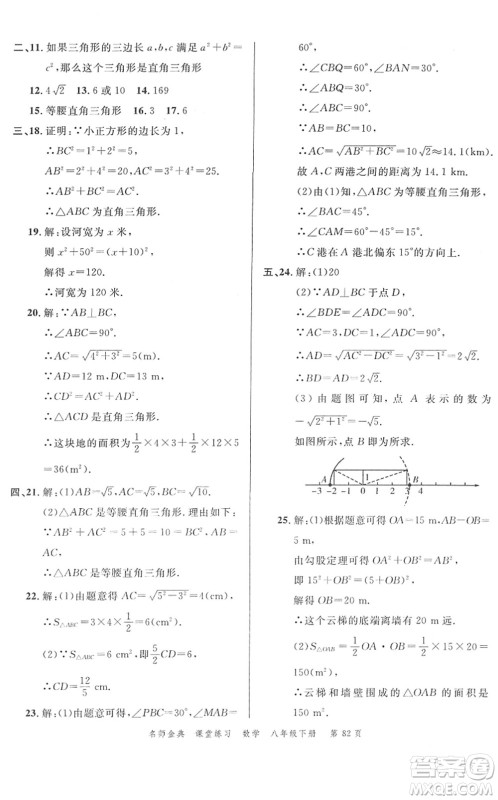 二、11. 如果三角形的三边长 a,b,c 满足 a²+b²=
c²,那么这个三角形是直角三角形
12. 4√2  13. 6 或 10  14. 169
15. 等腰直角三角形  16. 3  17. 6
三、18. 证明:∵小正方形的边长为 1,
∴BC²=20,AB²=5,AC²=25.
∵20+5=25,
∴BC²+AB²=AC².
∴△ABC 为直角三角形.
19. 解:设河宽为 x 米,
则 x²+50²=(x+10)².
解得 x=120.
∴河宽为 120 米.
20. 解:∵AB⊥BC,
∴∠ABC=90°.
∴AC=√(4²+3²)=5(m).
∵AD=12 m,CD=13 m,
∴CD²=AD²+AC².
∴∠CAD=90°.
∴这块地的面积为 1/2×4×3+1/2×12×5
=36(m²).
四、21. 解:(1)AB=√5,AC=√5,BC=√10.
(2)△ABC 是等腰直角三角形.理由如下:
∵AB²+AC²=5+5=10=BC²,
AB=AC,
∴△ABC 是等腰直角三角形.
22. 解:(1)由题意得 AC=√(5²-3²)=4(cm),
∴S△ABC=3×4×1/2=6(cm²).
(2)∵S△ABC=1/2×5×CD=6,
∴CD=12/5(cm).
23. 解:(1)由题意得∠PBC=30°,∠MAB=
60°.
∴∠CBQ=60°,∠BAN=30°.
∴∠ABQ=30°.
∴∠ABC=90°.
∵AB=BC=10,
∴AC=√(AB²+BC²)=10√2≈14.1(km).
故 A、C 两港之间的距离为 14.1 km.
(2)由(1)知,△ABC 为等腰直角三角形,
∴∠BAC=45°.
∴∠CAM=60°-45°=15°.
∴C 港在 A 港北偏东 15°的方向上.
五、24. 解:(1)20
(2)∵AD⊥BC于点 D,
∴∠BDE=∠ADC=90°.
∴AD=√(AC²-DC²)=√(3²-1²)=2√2.
(3)由题图可知,点 A 表示的数为
-√(2²+1²)=-√5.
如图所示,
A 1 B
-3 -2 -1 0 1 2 3 4
25. 解:(1)根据题意可得 OA=15 m,AB-OB=
5 m,
由勾股定理可得 OA²+OB²=AB²,
∴15²+OB²=(5+OB)².
解得 OB=20.
∴这个云梯的底端离墙 20 m.
(2)S△AOB=1/2OA·OB=1/2×15×20=
150(m²),
∴云梯和墙壁围成的△OAB 的面积
是150 m².
名师金典 课堂练习 数学 八年级下册 第 82 页